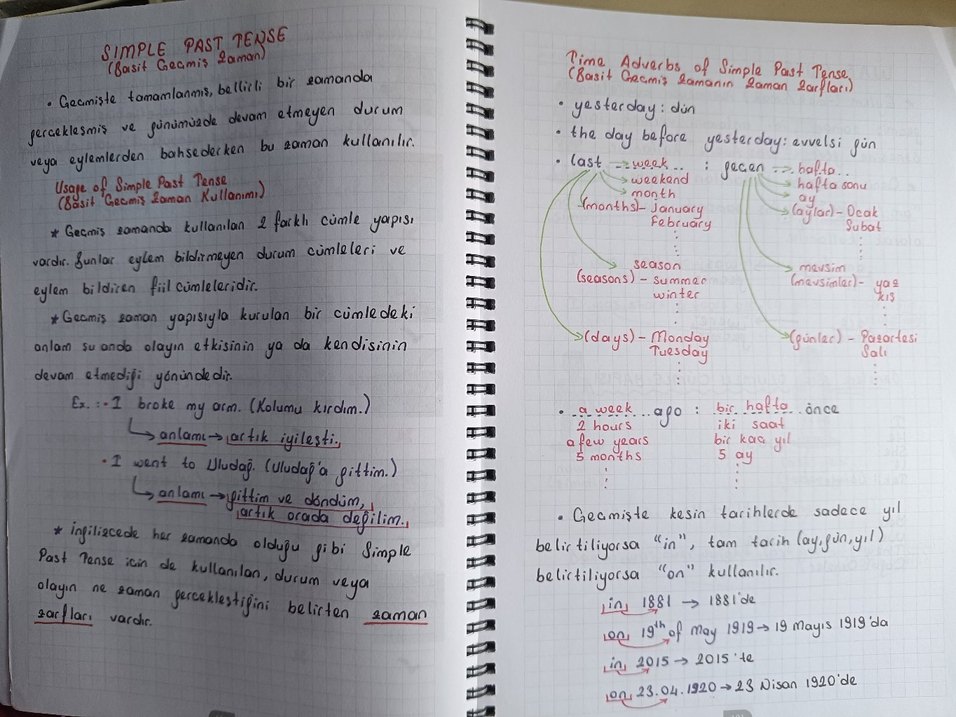 SIMPLE PAST TENSE
(Basit Geçmiş Zaman)
• Geçmişte tamamlanmış, belirli bir zamanda
gerçekleşmiş ve günümüzde devam etmeyen durum
veya eylemlerden bahsederken bu zaman kullanılır.
Usage of Simple Past Tense
(Basit Geçmiş Zaman Kullanımı)
* Geçmiş zamanda kullanılan 2 farklı cümle yapısı
vardır. Bunlar eylem bildirmeyen durum cümleleri ve
eylem bildiren fiil cümleleridir.
* Geçmiş zaman yapısıyla kurulan bir cümledeki
anlam şu anda olayın etkisinin ya da kendisinin
devam etmediği yönündedir.
Ex. :• I broke my arm. (Kolumu kırdım.)
anlamı → artık iyileşti.
• I went to Uludağ. (Uludağ'a gittim.)
anlamı → gittim ve döndüm,
artık orada değilim.
* İngilizcede her zamanda olduğu gibi Simple
Past Tense için de kullanılan, durum veya
olayın ne zaman gerçekleştiğini belirten zaman
zarfları vardır.
Time Adverbs of Simple Past Tense
(Basit Geçmiş Zamanın Zaman Zarfları)
• yesterday: dün
• the day before yesterday: evvelsi gün
• last → week.. : geçen → hafta..
weekend hafta sonu
month ay
(months) - January (aylar) - Ocak
February Şubat
season mevsim
(seasons) - summer (mevsimler) - yaz
winter kış
(days) - Monday (günler) - Pazartesi
Tuesday Salı
• a week ago : bir hafta önce
2 hours iki saat
a few years bir kaç yıl
5 months 5 ay
• Geçmişte kesin tarihlerde sadece yıl
belirtiliyorsa "in", tam tarih (ay,gün,yıl)
belirtiliyorsa "on" kullanılır.
in 1881 → 1881'de
on 19th of May 1919 → 19 Mayıs 1919'da
in 2015 → 2015'te
on 23.04.1920 → 23 Nisan 1920'de